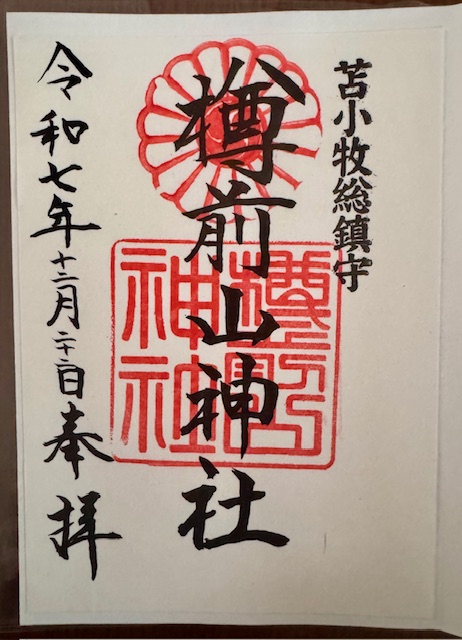 苫小牧総鎮守
樽前山神社
令和七年十二月二十二日奉拝